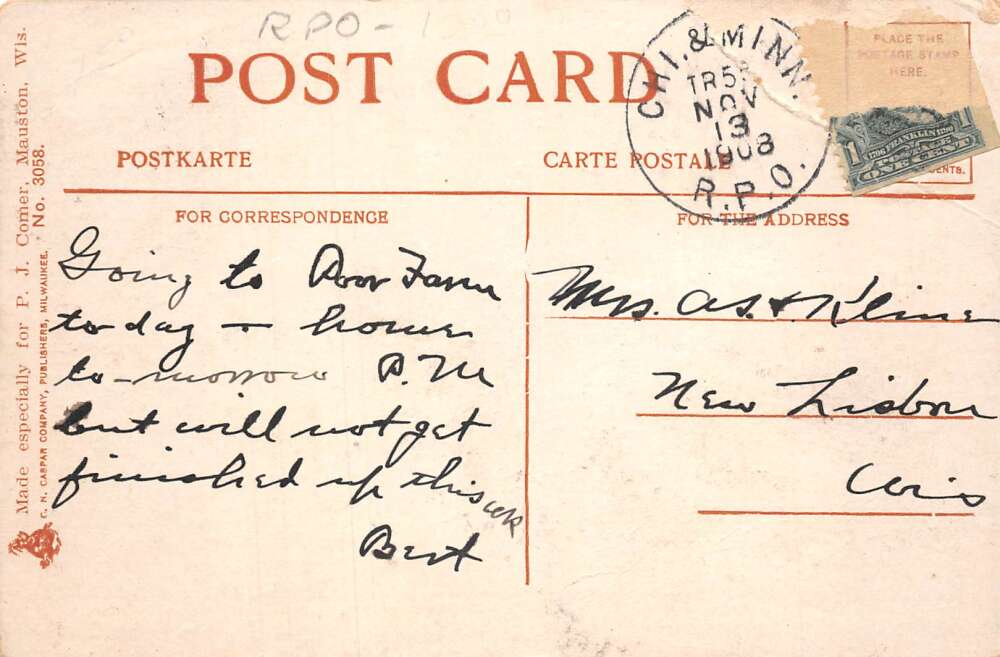 RPO-1
POST CARD
CHI. & MINN.
TR 5
NOV
13
1908
R.P.O.
PLACE THE
POSTAGE STAMP
HERE.
1 1796 FRANKLIN 1790 1
POSTAGE
ONE CENT
CENTS.
POSTKARTE
CARTE POSTALE
FOR CORRESPONDENCE
FOR THE ADDRESS
Going to Poor Farm
to-day - home
to-morrow P.M
but will not get
finished up this wk
Bert
Mrs. Kline
New Lisbon
Wis
Made especially for P. J. Comer, Mauston, Wis.
C. N. CASPAR COMPANY, PUBLISHERS, MILWAUKEE. No. 3058.